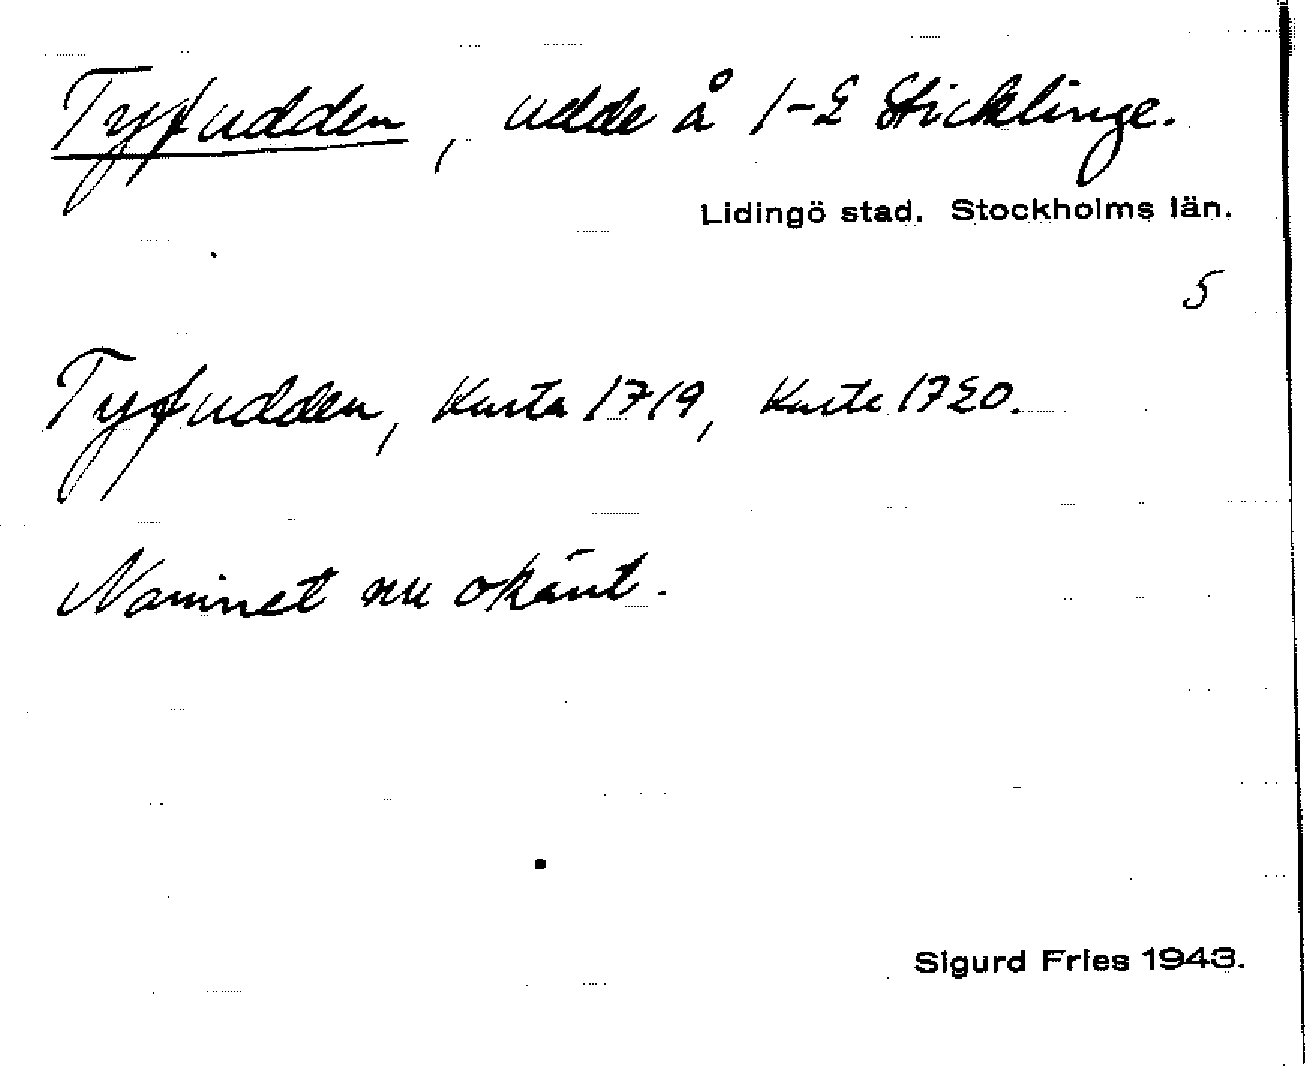 Tyfudden, udde å 1-2 Sticklinge.
Lidingö stad. Stockholms län.
5
Tyfudden, Karta 1719, Karta 1720.
Namnet nu okänt.
Sigurd Fries 1943.